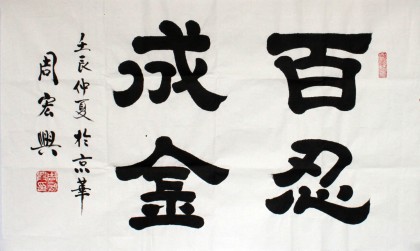 百忍
成金
壬辰仲夏於京華
周宏興